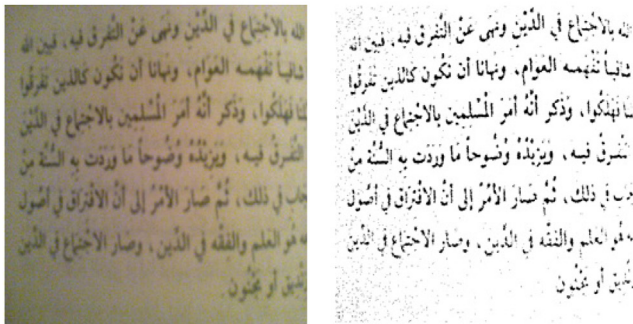 الله بالاجْتِمَاعِ في الدِّيْنِ ونَهَى عَنْ التَّفرق فيه، فبين الله
شافياً تَفْهَمه العَوَام، ونهانا أن نَكُون كالذين تَفَرقُوا
فَهَلَكُوا، وَذَكر أنَّهُ أمَرَ الْمُسْلِمِين بالاجْتِمَاعِ في الدِّيْن
التَّفرقُ فيه، وَيَزِيْدُهُ وُضُوحاً مَا وَرَدَت بِهِ السُّنَّة مِنْ
في ذلك، ثُمَّ صَارَ الأمْرُ إلى أنَّ الافْتِرَاقَ في أصُول
هُو العلم والفِقْه في الدين، وصار الاجْتِمَاعُ في الدِّين
أو مَجْنُون
الله بالاجْتِمَاعِ في الدِّيْنِ ونَهَى عَنْ التَّفرق فيه، فبين الله
شافياً تَفْهَمه العَوَام، ونهانا أن نَكُون كالذين تَفَرقُوا
فَهَلَكُوا، وَذَكر أنَّهُ أمَرَ الْمُسْلِمِين بالاجْتِمَاعِ في الدِّيْن
التَّفرقُ فيه، وَيَزِيْدُهُ وُضُوحاً مَا وَرَدَت بِهِ السُّنَّة مِنْ
في ذلك، ثُمَّ صَارَ الأمْرُ إلى أنَّ الافْتِرَاقَ في أصُول
هُو العلم والفِقْه في الدين، وصار الاجْتِمَاعُ في الدِّين
أو مَجْنُون